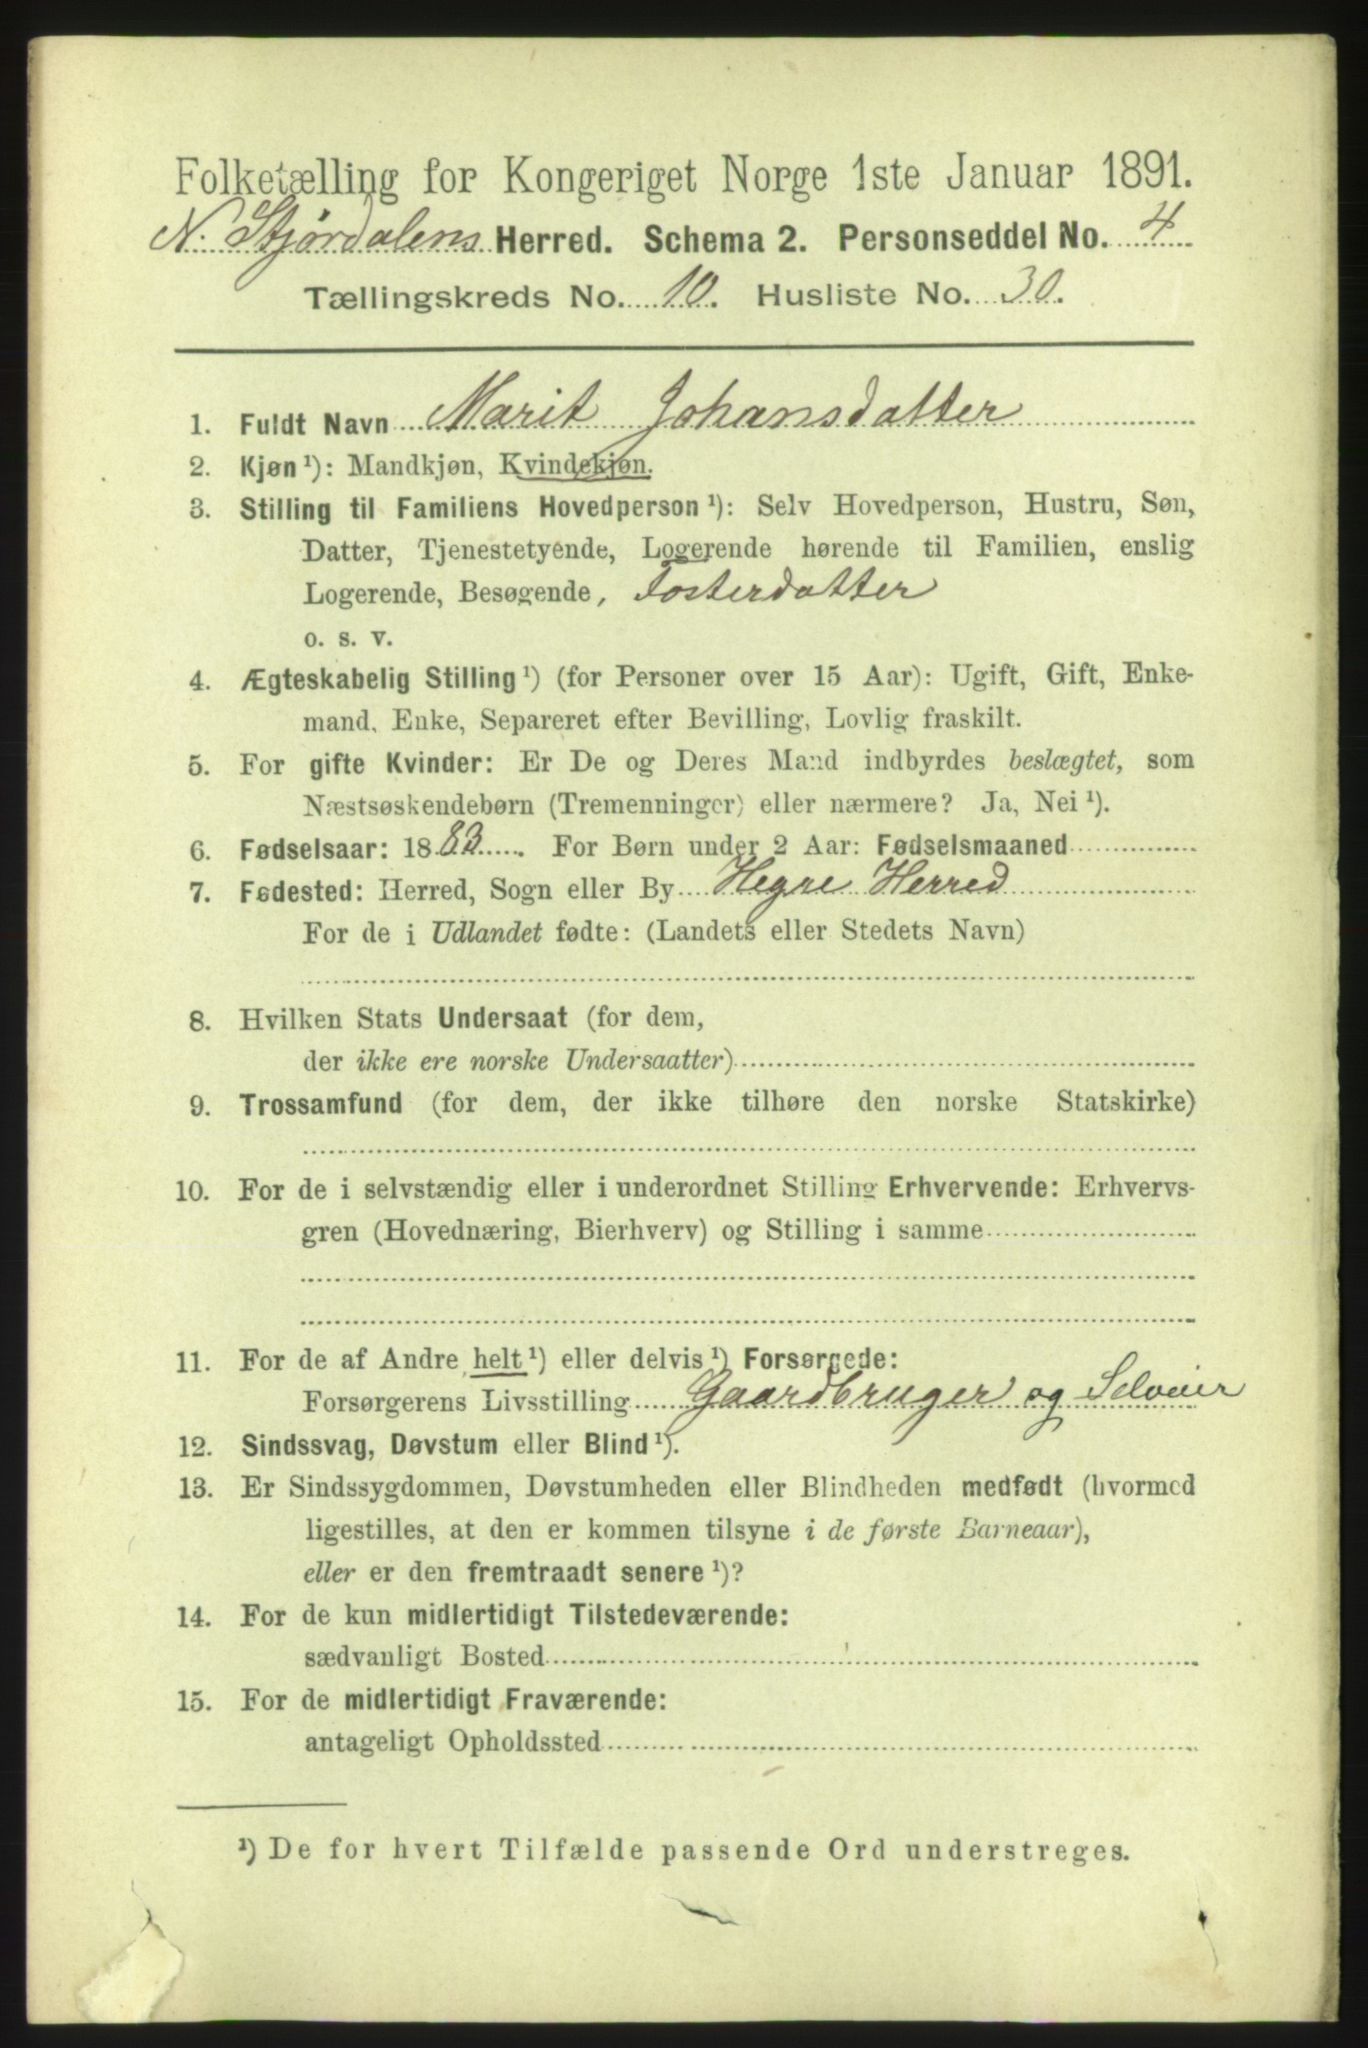 Folketælling for Kongeriget Norge 1ste Januar 1891.
N. Stjørdalens Herred. Schema 2. Personseddel No. 4
Tællingskreds No. 10. Husliste No. 30.
1. Fuldt Navn Marit Johansdatter
2. Kjøn ¹): Mandkjøn, Kvindekjøn.
3. Stilling til Familiens Hovedperson ¹): Selv Hovedperson, Hustru, Søn,
Datter, Tjenestetyende, Logerende hørende til Familien, enslig
Logerende, Besøgende, Fosterdatter
o. s. v.
4. Ægteskabelig Stilling ¹) (for Personer over 15 Aar): Ugift, Gift, Enke-
mand, Enke, Separeret efter Bevilling, Lovlig fraskilt.
5. For gifte Kvinder: Er De og Deres Mand indbyrdes beslægtet, som
Næstsøskendebørn (Tremenninger) eller nærmere? Ja, Nei ¹).
6. Fødselsaar: 1883. For Børn under 2 Aar: Fødselsmaaned
7. Fødested: Herred, Sogn eller By Hegre Herred
For de i Udlandet fødte: (Landets eller Stedets Navn)
8. Hvilken Stats Undersaat (for dem,
der ikke ere norske Undersaatter)
9. Trossamfund (for dem, der ikke tilhøre den norske Statskirke)
10. For de i selvstændig eller i underordnet Stilling Erhvervende: Erhvervs-
gren (Hovednæring, Bierhverv) og Stilling i samme
11. For de af Andre helt ¹) eller delvis ¹) Forsørgede:
Forsørgerens Livsstilling Gaardbruger og Selveier
12. Sindssvag, Døvstum eller Blind ¹).
13. Er Sindssygdommen, Døvstumheden eller Blindheden medfødt (hvormed
ligestilles, at den er kommen tilsyne i de første Barneaar),
eller er den fremtraadt senere ¹)?
14. For de kun midlertidigt Tilstedeværende:
sædvanligt Bosted
15. For de midlertidigt Fraværende:
antageligt Opholdssted
¹) De for hvert Tilfælde passende Ord understreges.